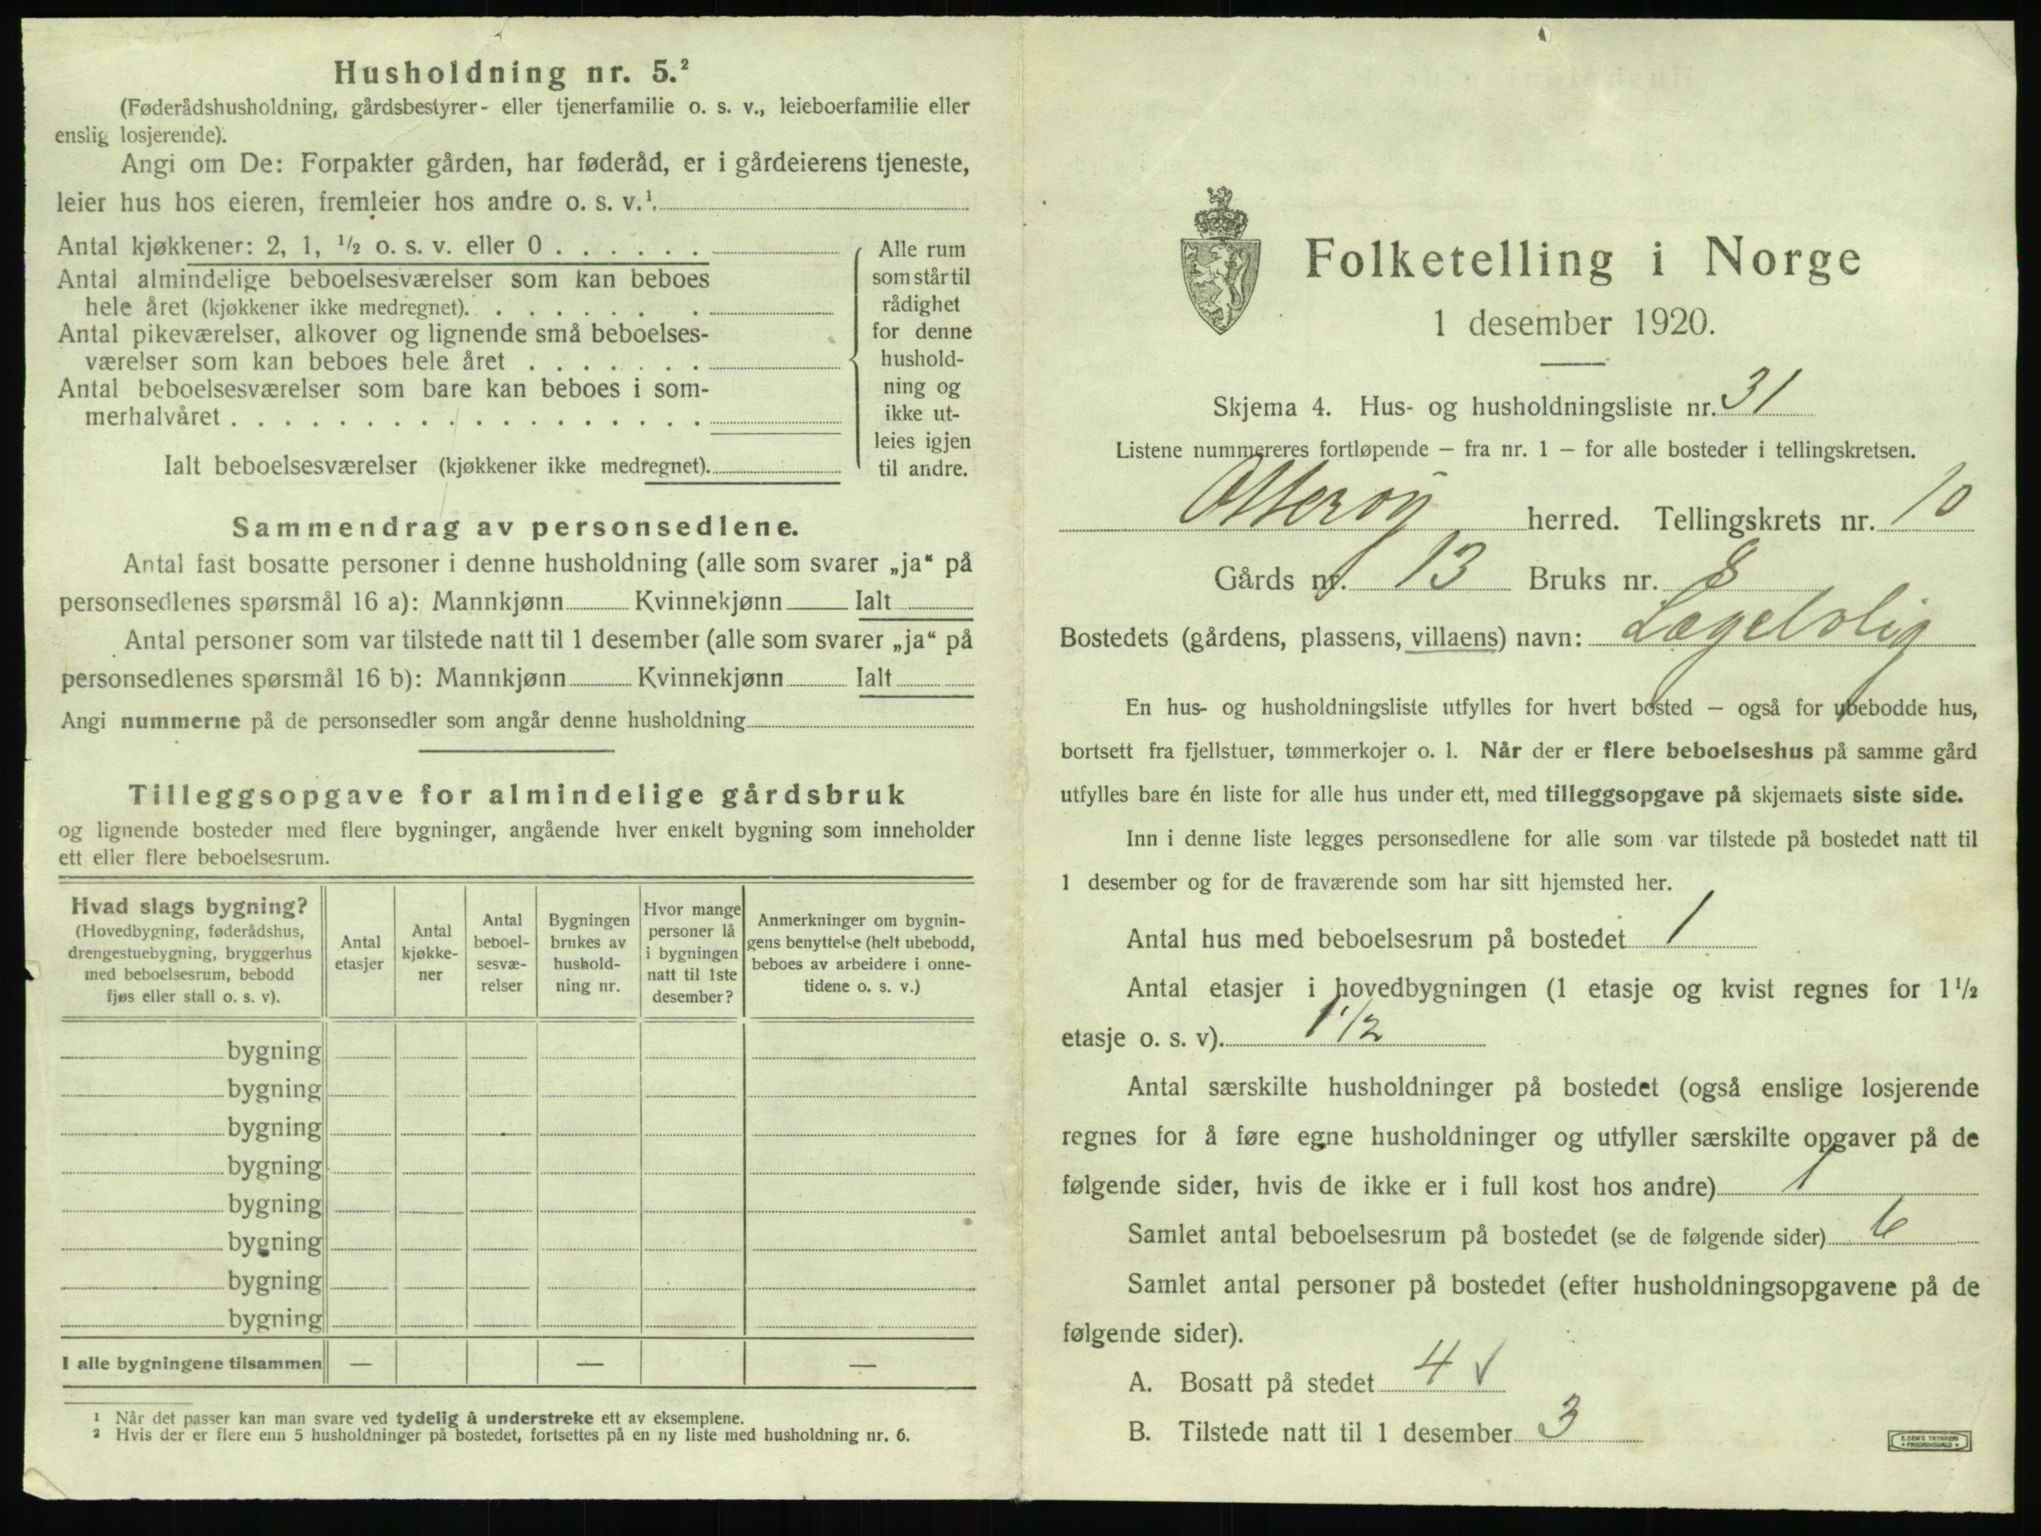 Husholdning nr. 5.²
(Føderådshusholdning, gårdsbestyrer- eller tjenerfamilie o. s. v., leieboerfamilie eller
enslig losjerende).
Angi om De: Forpakter gården, har føderåd, er i gårdeierens tjeneste,
leier hus hos eieren, fremleier hos andre o. s. v.¹.
Antal kjøkkener: 2, 1, ½ o. s. v. eller 0 . . . . . .
Antal almindelige beboelsesværelser som kan beboes
hele året (kjøkkener ikke medregnet). . . . . . . .
Antal pikeværelser, alkover og lignende små beboelses-
værelser som kan beboes hele året . . . . . . .
Antal beboelsesværelser som bare kan beboes i som-
merhalvåret . . . . . . . . . . . . . . . . . .
Ialt beboelsesværelser (kjøkkener ikke medregnet).
Alle rum
som står til
rådighet
for denne
hushold-
ning og
ikke ut-
leies igjen
til andre.
Sammendrag av personsedlene.
Antal fast bosatte personer i denne husholdning (alle som svarer „ja“ på
personsedlenes spørsmål 16 a): Mannkjønn Kvinnekjønn Ialt
Antal personer som var tilstede natt til 1 desember (alle som svarer „ja“ på
personsedlenes spørsmål 16 b): Mannkjønn Kvinnekjønn Ialt
Angi nummerne på de personsedler som angår denne husholdning
Tilleggsopgave for almindelige gårdsbruk
og lignende bosteder med flere bygninger, angående hver enkelt bygning som inneholder
ett eller flere beboelsesrum.
Hvad slags bygning?
(Hovedbygning, føderådshus,
drengestuebygning, bryggerhus
med beboelsesrum, bebodd
fjøs eller stall o. s. v).
Antal
etasjer
Antal
kjøkke-
ner
Antal
beboel-
sesvæ-
relser
Bygningen
brukes av
hushold-
ning nr.
Hvor mange
personer lå
i bygningen
natt til 1ste
desember?
Anmerkninger om bygnin-
gens benyttelse (helt ubebodd,
beboes av arbeidere i onne-
tidene o. s. v.)
bygning
bygning
bygning
bygning
bygning
bygning
bygning
bygning
I alle bygningene tilsammen — — —
¹ Når det passer kan man svare ved tydelig å understreke ett av eksemplene.
² Hvis der er flere enn 5 husholdninger på bostedet, fortsettes på en ny liste med husholdning nr. 6.
Folketelling i Norge
1 desember 1920.
Skjema 4. Hus- og husholdningsliste nr. 31
Listene nummereres fortløpende – fra nr. 1 – for alle bosteder i tellingskretsen.
Otterøy herred. Tellingskrets nr. 10
Gårds nr. 13 Bruks nr. 8
Bostedets (gårdens, plassens, villaens) navn: Lægebolig
En hus- og husholdningsliste utfylles for hvert bosted – også for ubebodde hus,
bortsett fra fjellstuer, tømmerkojer o. l. Når der er flere beboelseshus på samme gård
utfylles bare én liste for alle hus under ett, med tilleggsopgave på skjemaets siste side.
Inn i denne liste legges personsedlene for alle som var tilstede på bostedet natt til
1 desember og for de fraværende som har sitt hjemsted her.
Antal hus med beboelsesrum på bostedet 1
Antal etasjer i hovedbygningen (1 etasje og kvist regnes for 1½
etasje o. s. v). 1½
Antal særskilte husholdninger på bostedet (også enslige losjerende
regnes for å føre egne husholdninger og utfyller særskilte opgaver på de
følgende sider, hvis de ikke er i full kost hos andre) 1
Samlet antal beboelsesrum på bostedet (se de følgende sider) 6
Samlet antal personer på bostedet (efter husholdningsopgavene på de
følgende sider).
A. Bosatt på stedet 4 √
B. Tilstede natt til 1 desember 3
E. SEM'S TRYKKERI
• FREDRIKSHALD •